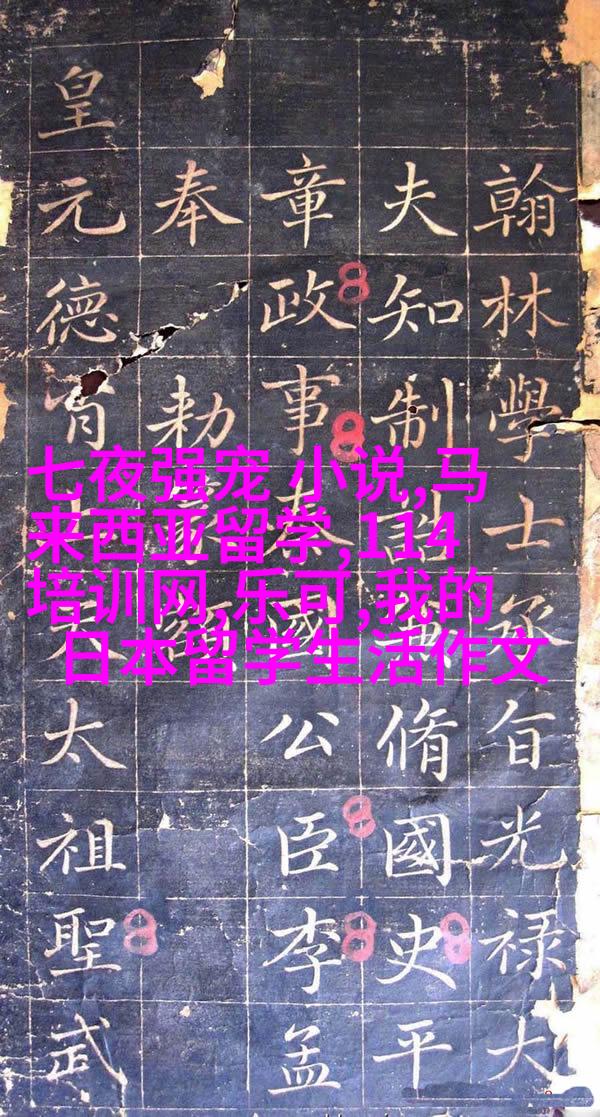 七夜强宠 小说,马
来西亚留学,114
培训网,乐可,我的
日本留学生活作文
翰林學士承旨光禄大
夫知制脩國史平
章政事國公臣李孟
奉勑
皇元德太祖聖武